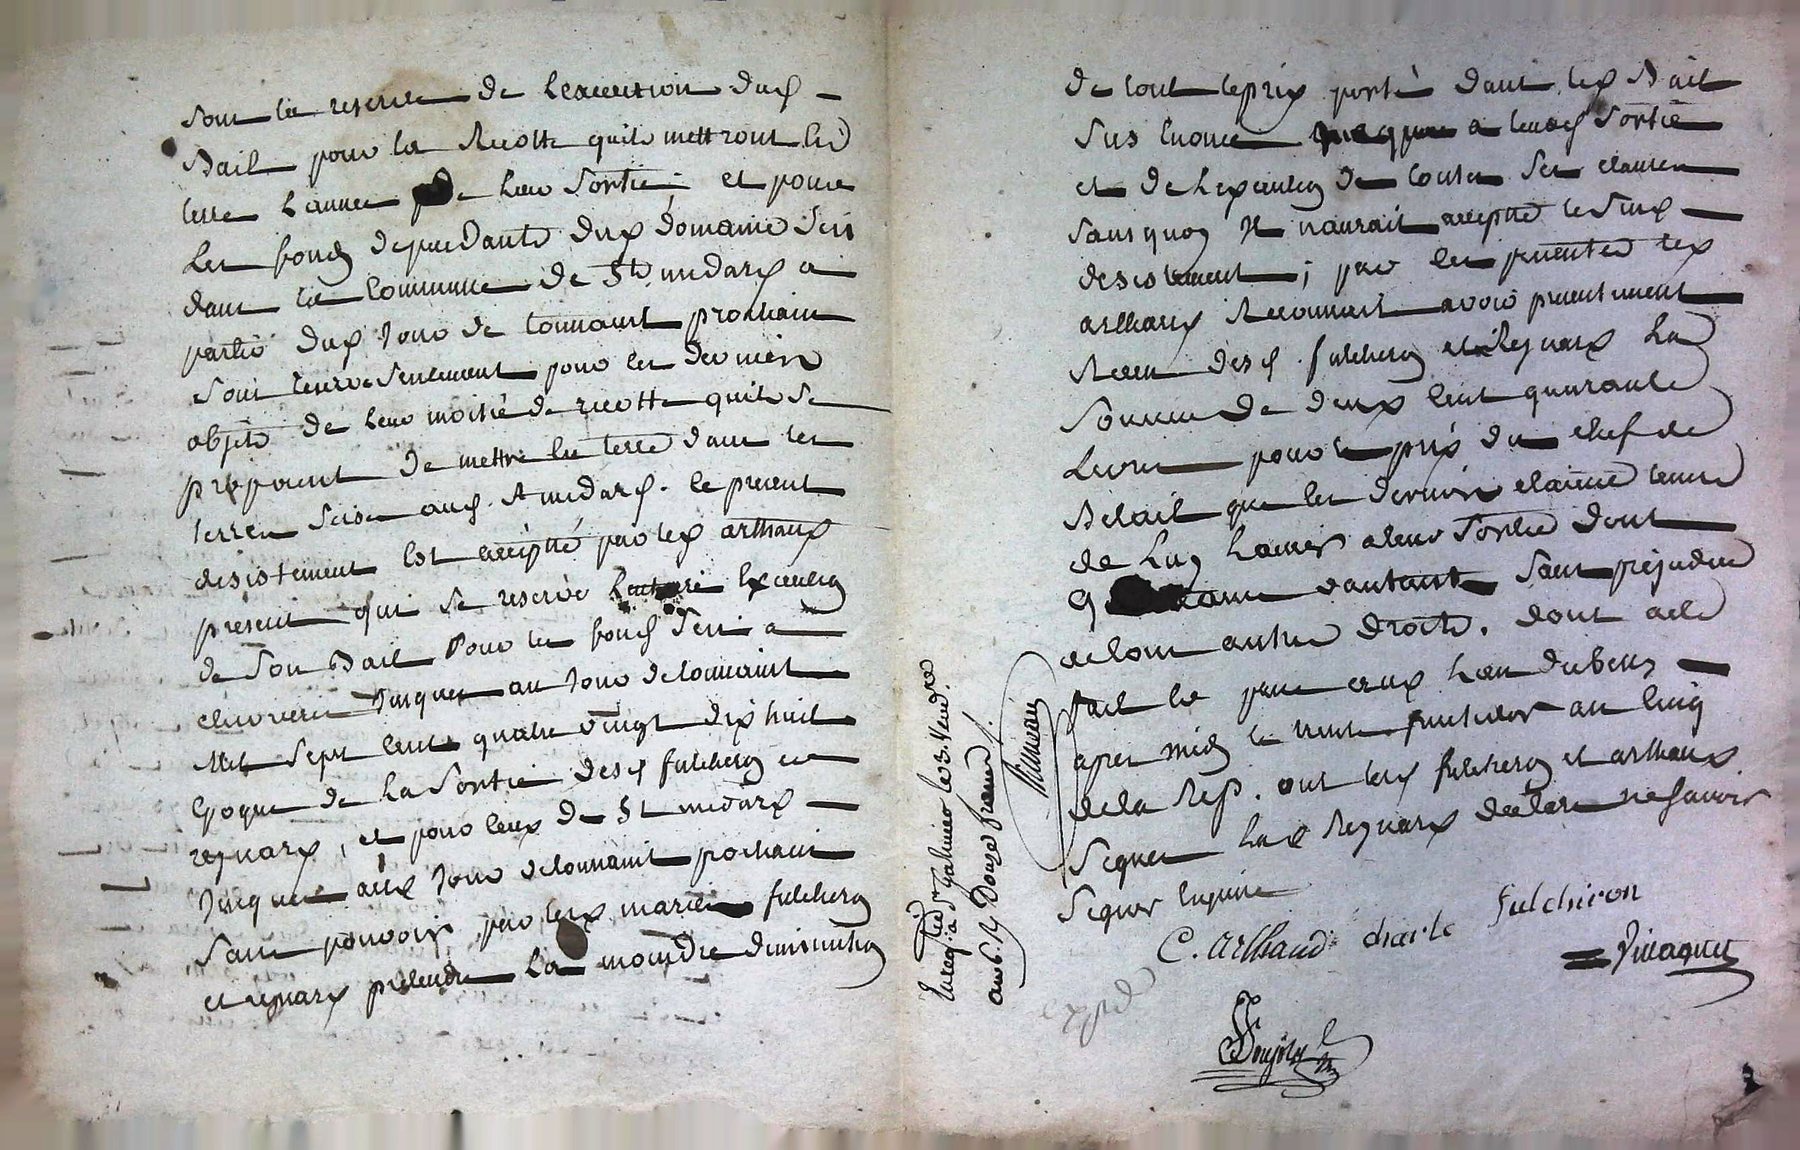 sous la reserve de lexecution dud
Bail pour la Recotte quils mettront En
terre Lannee de Leur Sortie et pour
Les fonds dependants dud domaine Scis
dans la Commune de St medard a
partir dud Jour de tounaint prochain
Sous reserve Seulement pour les derniers
objets de leur moitié de recotte quils Se
proposent de mettre En terre dans les
terres Scise aud St medard. le present
desistement Est accepté par led arthaud
present qui Se reserve Execution
de Son Bail Pour les fonds Scis a
chevrieres Jusques au Jour de tounaint
Mil Sept Cent quatre vingt dix huit
Epoque de La Sortie desd fulchiron et
regnard, et pour Ceux de St medard
Jusques aud Jour de tounaint prochain
Sans pouvoir par lesd mariés fulchiron
et regnard pretendre La moindre diminution
de tout le prix porté dans led Bail
Sus Enoncé a leurd Sortie
et de Lexecution de toutes Ses clauses
Sans quoy Il naurait accepté le Susd
desistement; par les presentes led
arthaud Reconnait avoir presentement
Receu desd fulchiron et Regnard La
Somme de deux Cent quarante
Livres pour le prix du chef de
Betail que les derniers etaient tenus
de Luy Laisser a leur Sortie dont
quittance dautant Sans prejudice
de tous autres droits. dont acte
fait Le
apres midy le trente fructidor an Cinq
de la Rep. ont lesd fulchiron et arthaud
Signé La d Regnard declare ne Savoir
Signer Enquise
C. arthaud charle fulchiron
Enregé a St Galmier le 3 Vendre
an 6 R Douze francs
expd